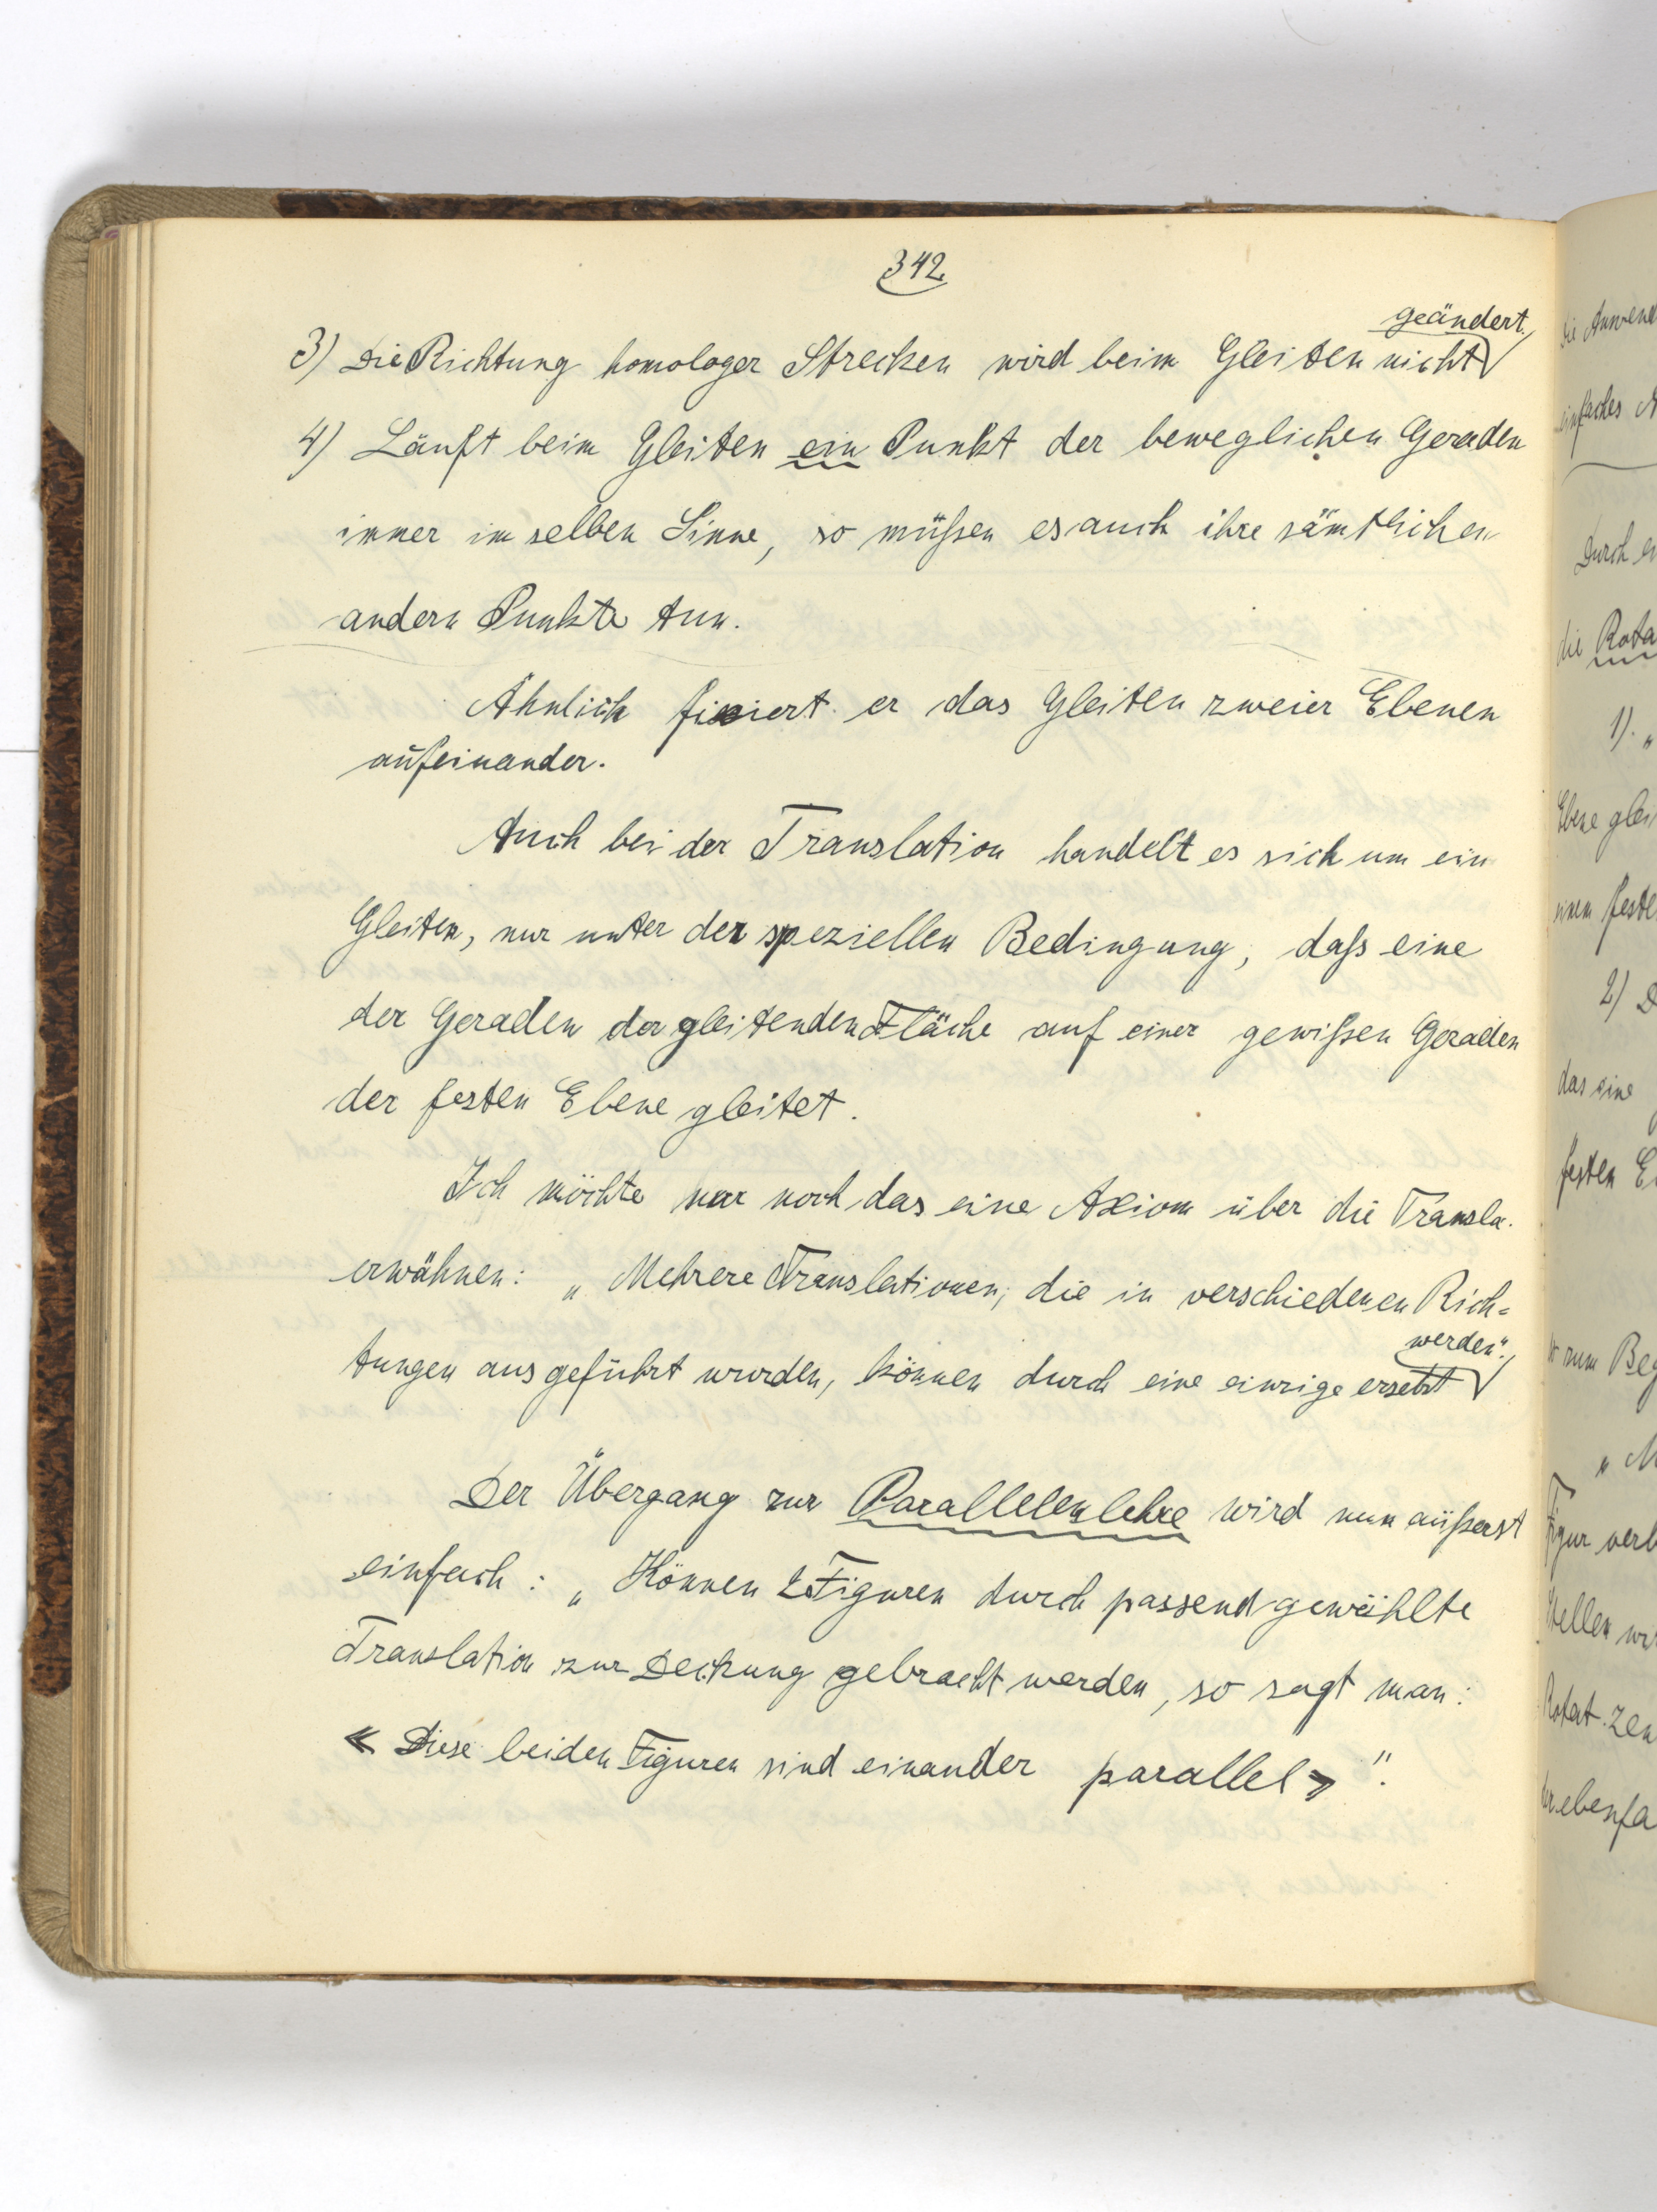 342.
3) Die Richtung homologer Strecken wird beim Gleiten nicht geändert.
4) Läuft beim Gleiten ein Punkt der beweglichen Geraden
immer im selben Sinne, so müßen es auch ihre sämtlichen
andern Punkte tun.
Ähnlich fixiert er das Gleiten zweier Ebenen
aufeinander.
Auch bei der Translation handelt es sich um ein
Gleiten, nur unter der speziellen Bedingung, daß eine
der Geraden der gleitenden Fläche auf einer gewißen Geraden
der festen Ebene gleitet.
Ich möchte nur noch das eine Axiom über die Transla.
erwähnen: „Mehrere Translationen, die in verschiedenen Rich=
tungen ausgeführt wurden, können durch eine einzige ersetzt werden".
Der Übergang zur Parallelenlehre wird nun äußerst
einfach: „Können 2 Figuren durch passend gewählte
Translation zur Deckung gebracht werden, so sagt man:
« Diese beiden Figuren sind einander parallel »".
die Anwend
einfaches
Durch
die Rota
1). „
Ebene glei
einen feste
2) D
das eine
festen E
zum Beg
„ M
Figur verb
stellen
Rotat. zen
ebenfa